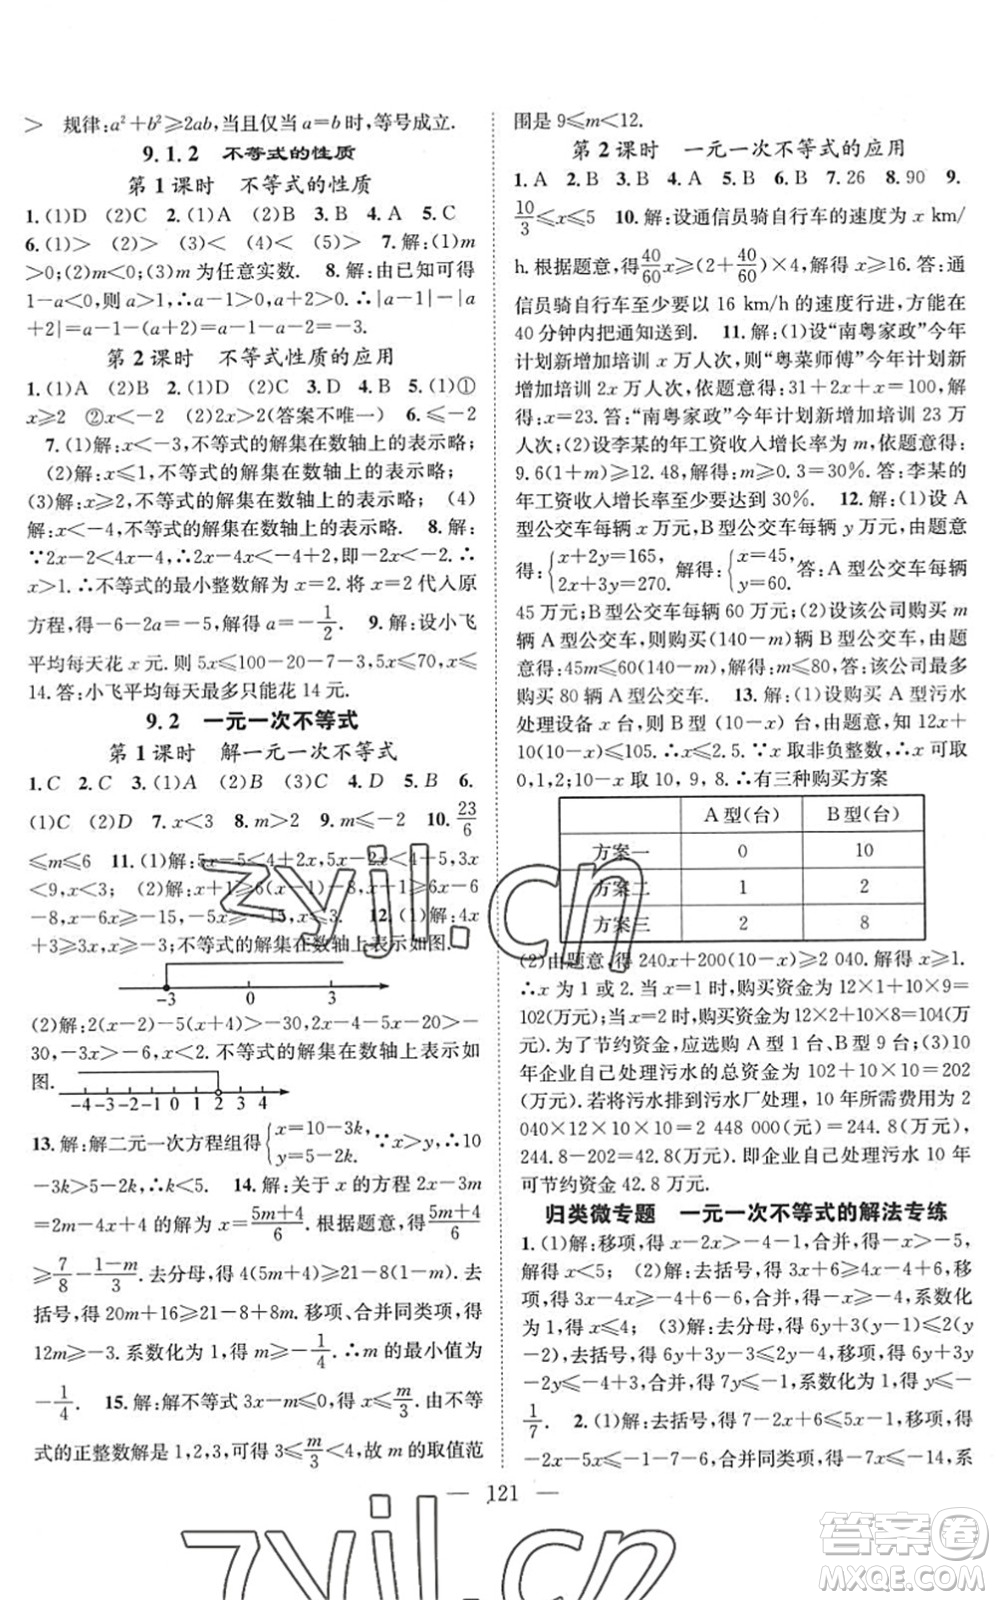 > 规律:a²+b²≥2ab,当且仅当 a=b 时,等号成立.
9.1.2 不等式的性质
第 1 课时 不等式的性质
1.(1)D (2)C 2.(1)A (2)B 3.B 4.A 5.C
6.(1)> (2)> (3)< (4)< (5)> 7.解:(1)m
>0;(2)m<0;(3)m 为任意实数. 8.解:由已知可得
1-a<0,则 a>1,∴-a<-1<0. ∴|a-1|-|a
+2|=a-1-(a+2)=a-1-a-2=-3.
第 2 课时 不等式性质的应用
1.(1)A (2)B 2.A 3.D 4.B 5.(1)①
x≥2 ②x<-2 (2)2x>2(答案不唯一) 6.≤-2
7.(1)解:x<-3,不等式的解集在数轴上的表示略;
(2)解:x≤1,不等式的解集在数轴上的表示略;
(3)解:x≥2,不等式的解集在数轴上的表示略; (4)
解:x<-4,不等式的解集在数轴上的表示略. 8.解:
∵2x-2<4x-4,∴2x-4x<-4+2,即-2x<-2.∴
x>1.∴不等式的最小整数解为 x=2.将 x=2 代入原
方程,得-6-2a=-5,解得 a=-1/2. 9.解:设小飞
平均每天花 x 元.则 5x≤100-20-7-3,解得 x≤
14.答:小飞平均每天最多只能花 14 元.
9.2 一元一次不等式
第 1 课时 解一元一次不等式
1.C 2.C 3.(1)A (2)B (3)C 4.B 5.B 6.
(1)C (2)D 7.x<3 8.m>2 9.m≤-2 10.23/6
≤m≤6 11.(1)解:5x-5<4x+4,5x-2x<4+5,3x
<9,x<3;(2)解:x+1≥6(x-1)-8,x+1≥6x-6
-8,x-6x≥-15,-5x≥-15,x≤3. 12.(1)解:4x
+3≥3x,x≥-3,不等式的解集在数轴上表示如图.
-3 0 3
(2)解:2(x-2)-5(x+4)>-30,2x-4-5x-20>-
30,-3x>-6,x<2.不等式的解集在数轴上表示如
图.
-4-3-2-1 0 1 2 3 4
13.解:解二元一次方程组得{x=10-3k, y=5-2k. ∵x>y,∴10
-3k>5-2k,∴k<5. 14.解:关于 x 的方程 2x-3m
=2m-4x+4 的解为 x=(5m+4)/6. 根据题意,得(5m+4)/6
≥7/8-(1-m)/3.去分母,得 4(5m+4)≥21-8(1-m).去
括号,得 20m+16≥21-8+8m.移项、合并同类项,得
12m≥-3.系数化为 1,得 m≥-1/4.∴m 的最小值为
-1/4. 15.解:解不等式 3x-m≤0,得 x≤m/3.由不等
式的正整数解是 1,2,3,可得 3≤m/3<4,故 m 的取值范
围是 9≤m<12.
第 2 课时 一元一次不等式的应用
1.A 2.B 3.B 4.A 5.A 6.B 7.26 8.90 9.
10/3≤x≤5 10.解:设通信员骑自行车的速度为 x km/
h.根据题意,得40/60 x≥(2+40/60)×4,解得 x≥16.答:通
信员骑自行车至少要以 16 km/h 的速度行进,方能在
40 分钟内把通知送到. 11.解:(1)设“南粤家政”今年
计划新增加培训 x 万人次,则“粤菜师傅”今年计划
新增加培训 2x 万人次,依题意得:31+2x+x=100,解
得:x=23.答:“南粤家政”今年计划新增加培训 23 万
人次;(2)设李某的年工资收入增长率为 m,依题意得:
9.6(1+m)≥12.48,解得:m≥0.3=30%.答:李某的
年工资收入增长率至少要达到 30%. 12.解:(1)设 A
型公交车每辆 x 万元,B 型公交车每辆 y 万元,由题意
得:{x+2y=165, 2x+3y=270. 解得:{x=45, y=60. 答:A 型公交车每辆
45 万元;B 型公交车每辆 60 万元;(2)设该公司购买 m
辆 A 型公交车,则购买(140-m)辆 B 型公交车,由题
意得:45m≤60(140-m),解得:m≤80,答:该公司最多
购买 80 辆 A 型公交车. 13.解:(1)设购买 A 型污水
处理设备 x 台,则 B 型 (10-x) 台,由题意,得 12x+
10(10-x)≤105.∴x≤2.5.∵x 取非负整数,∴x 可取
0,1,2;10-x 取 10,9,8.∴有三种购买方案
A 型(台) B 型(台)
方案一 0 10
方案二 1 2
方案三 2 8
(2)由题意,得 240x+200(10-x)≥2 040.解得 x≥1.
∴x 为 1 或 2.当 x=1 时,购买资金为 12×1+10×9=
102(万元);当 x=2 时,购买资金为 12×2+10×8=
为了节约资金,应选购 A 型 1 台、B 型 9 台;(3)10
年企业自己处理污水的总资金为 102+10×10=202
(万元).若将污水排到污水厂处理,10 年所需费用为 2
040×12×10×10=2 448 000(元)=244.8(万元).
244.8-202=42.8(万元).即企业自己处理污水 10 年
可节约资金 42.8 万元.
归类微专题 一元一次不等式的解法专练
1.(1)解:移项,得 x-2x>-4-1,合并,得-x>-5,
解得 x<5; (2)解:去括号,得 3x+6≥4x+4-6,移
项,得 3x-4x≥4-6-6,合并,得-x≥-8,系数化
为 1,得 x≤4; (3)解:去分母,得 6y+3(y-1)<2y
-2),去括号,得 6y+3y-3<2y-4,移项,得 6y+3y-
-2y<-4+3,合并,得 7y<-1,系数化为 1,得 y<-
1/7. 2.(1)解:去括号,得 7-2x+6≤5x-1,移项,得
-2x-5x≤-1-7-6,合并同类项,得-7x≤-14,系
121
zyjl.cn
zyjl.cn
答案圈
MXQE.COM